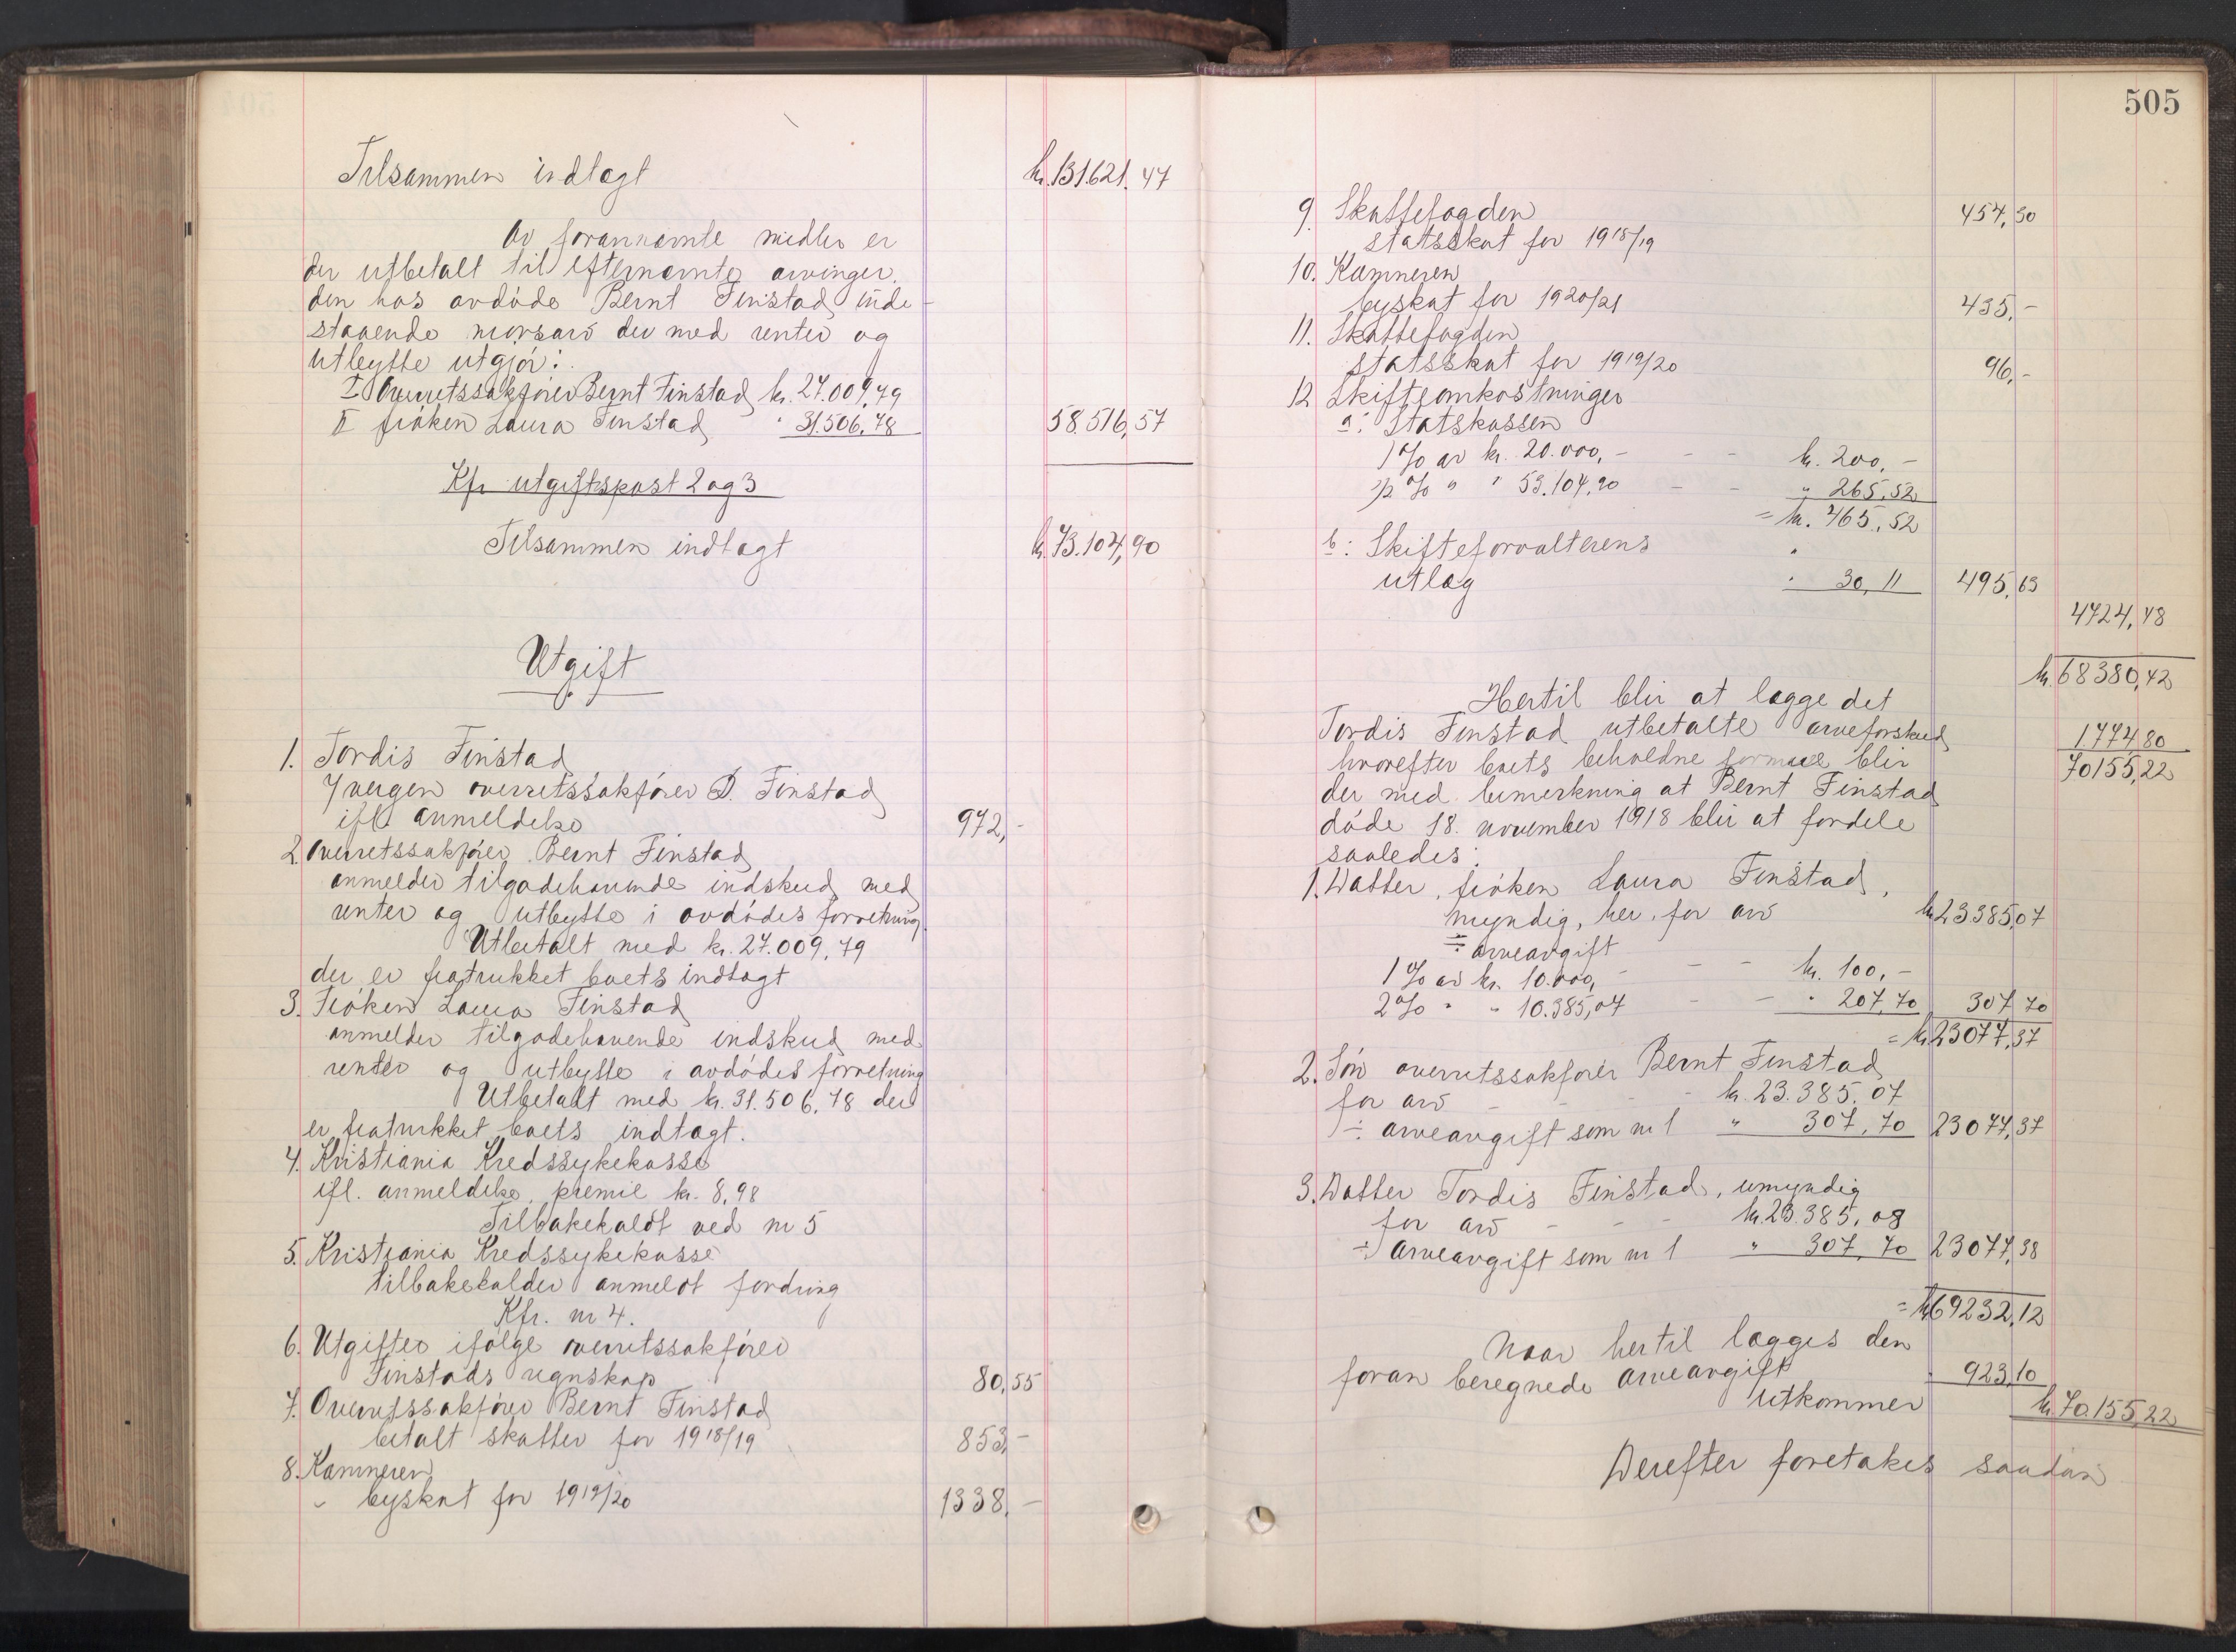 Tilsammen indtægt kr. 131.621.47
Av forannævnte midler er
der utbetalt til efternævnte arvinger
den hos avdøde Bernt Finstad inde-
staaende morsarv der med renter og
utbytte utgjør:
I Overretssakfører Bernt Finstad kr. 27.009,79
II frøken Laura Finstad " 31.506,78 58.516,57
Kfr utgiftspost 2 og 3
Tilsammen indtægt kr. 73.104,90
Utgift
1. Tordis Finstad
v/vergen overretssakfører B. Finstad
ifl. anmeldelse 972,-
2. Overretssakfører Bernt Finstad
anmelder tilgodehavende indskud med
renter og utbytte i avdødes forretning
Utbetalt med kr. 27.009,79
der er fratrukket boets indtægt
3. Frøken Laura Finstad
anmelder tilgodehavende indskud med
renter og utbytte i avdødes forretning
Utbetalt med kr. 31.506,78 der
er fratrukket boets indtægt.
4. Kristiania Kredssykekasse
ifl. anmeldelse, premie kr. 8,98
Tilbakekaldt ved nr 5
5. Kristiania Kredssykekasse
tilbakekalder anmeldt fordring
Kfr. nr 4.
6. Utgifter ifølge overretssakfører
Finstads regnskap 80,55
7. Overretssakfører Bernt Finstad
betalt skatter for 1918/19 853,-
8. Kæmneren
byskat for 1919/20 1338,-
505
9. Skattefogden 454,30
statsskat for 1918/19
10. Kæmneren
byskat for 1920/21 435,-
11. Skattefogden
statsskat for 1919/20 96,-
12 Skifteomkostninger
a: Statskassen
1% av kr. 20.000,- - - kr. 200,-
1/2 % " " 53.104,90 - - " 265,52
= kr. 465,52
b: Skifteforvalterens "
utlæg " 30,11 495,63
4724,48
kr. 68380,42
Hertil blir at lægge det
Tordis Finstad utbetalte arveforskud 1774,80
hvorefter boets beholdne formue blir 70155,22
der med bemerkning at Bernt Finstad
døde 18. november 1918 blir at fordele
saaledes:
1. Datter, frøken Laura Finstad,
myndig, her, for arv kr. 23385,07
÷ arveavgift
1% av kr. 10.000,- - - kr. 100,-
2% " " 10.385,07 - - " 207,70 307,70
= kr. 23077,37
2. Søn overretssakfører Bernt Finstad
for arv - - - kr. 23.385,07
÷ arveavgift som nr 1 " 307,70 23077,37
3. Datter Tordis Finstad, umyndig
for arv - - - kr. 23.385,08
÷ arveavgift som nr 1 " 307,70 23077,38
= kr. 69232,12
Naar hertil lægges den
foran beregnede arveavgift " 923,10
utkommer kr. 70.155,22
Derefter foretakes saadan